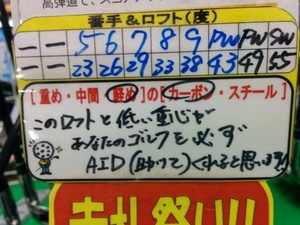 高弾道で、スコア
番手&ロフト(度)
— — 5 6 7 8 9 PW PW SW
— — 23 26 29 33 38 43 49 55
[重め・中間・軽め]の[カーボン・スチール]
このロフトと低い重心が
あなたのゴルフを必ず
AID(助けて)くれると思います!